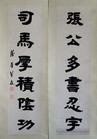 張公多書忍字
司馬厚積陰功